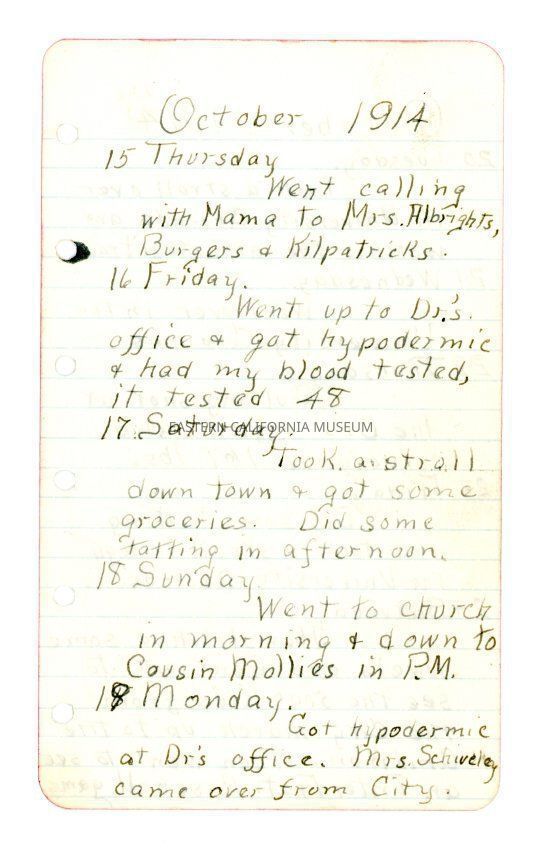 October 1914
15 Thursday
Went calling
with Mama to Mrs. Albrights,
Burgers & Kilpatricks.
16 Friday.
Went up to Dr.'s.
office & got hypodermic
& had my blood tested,
it tested 48
17. Saturday.
EASTERN CALIFORNIA MUSEUM
Took a stroll
down town & got some
groceries. Did some
tatting in afternoon.
18 Sunday.
Went to church
in morning & down to
Cousin Mollies in P.M.
18 Monday.
Got hypodermic
at Dr's office. Mrs. Schiveley
came over from City.